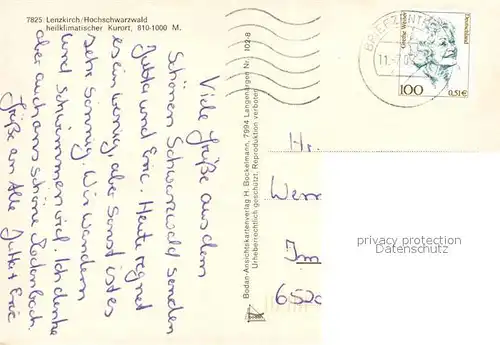 7825 Lenzkirch/Hochschwarzwald
heilklimatischer Kurort, 810-1000 M.
Viele Grüße aus dem
Schönen Schwarzwald senden
Jutta und Eric. Heute regnet
es ein wenig, aber sonst ist es
sehr sonnig. Wir wandern
und schwimmen viel. Ich denke
aber auch ans schöne Rodenbach.
Grüße an Alle Jutta + Eric
Bodan-Ansichtskartenverlag H. Bockelmann, 7994 Langenargen Nr. 102-8
Urheberrechtlich geschützt. Reproduktion verboten
BRIEFZENTR
11.-7.0
Grethe Weiser
Deutschland
100
0,51€
Hr.
Wern
Im
652
privacy protection
Datenschutz